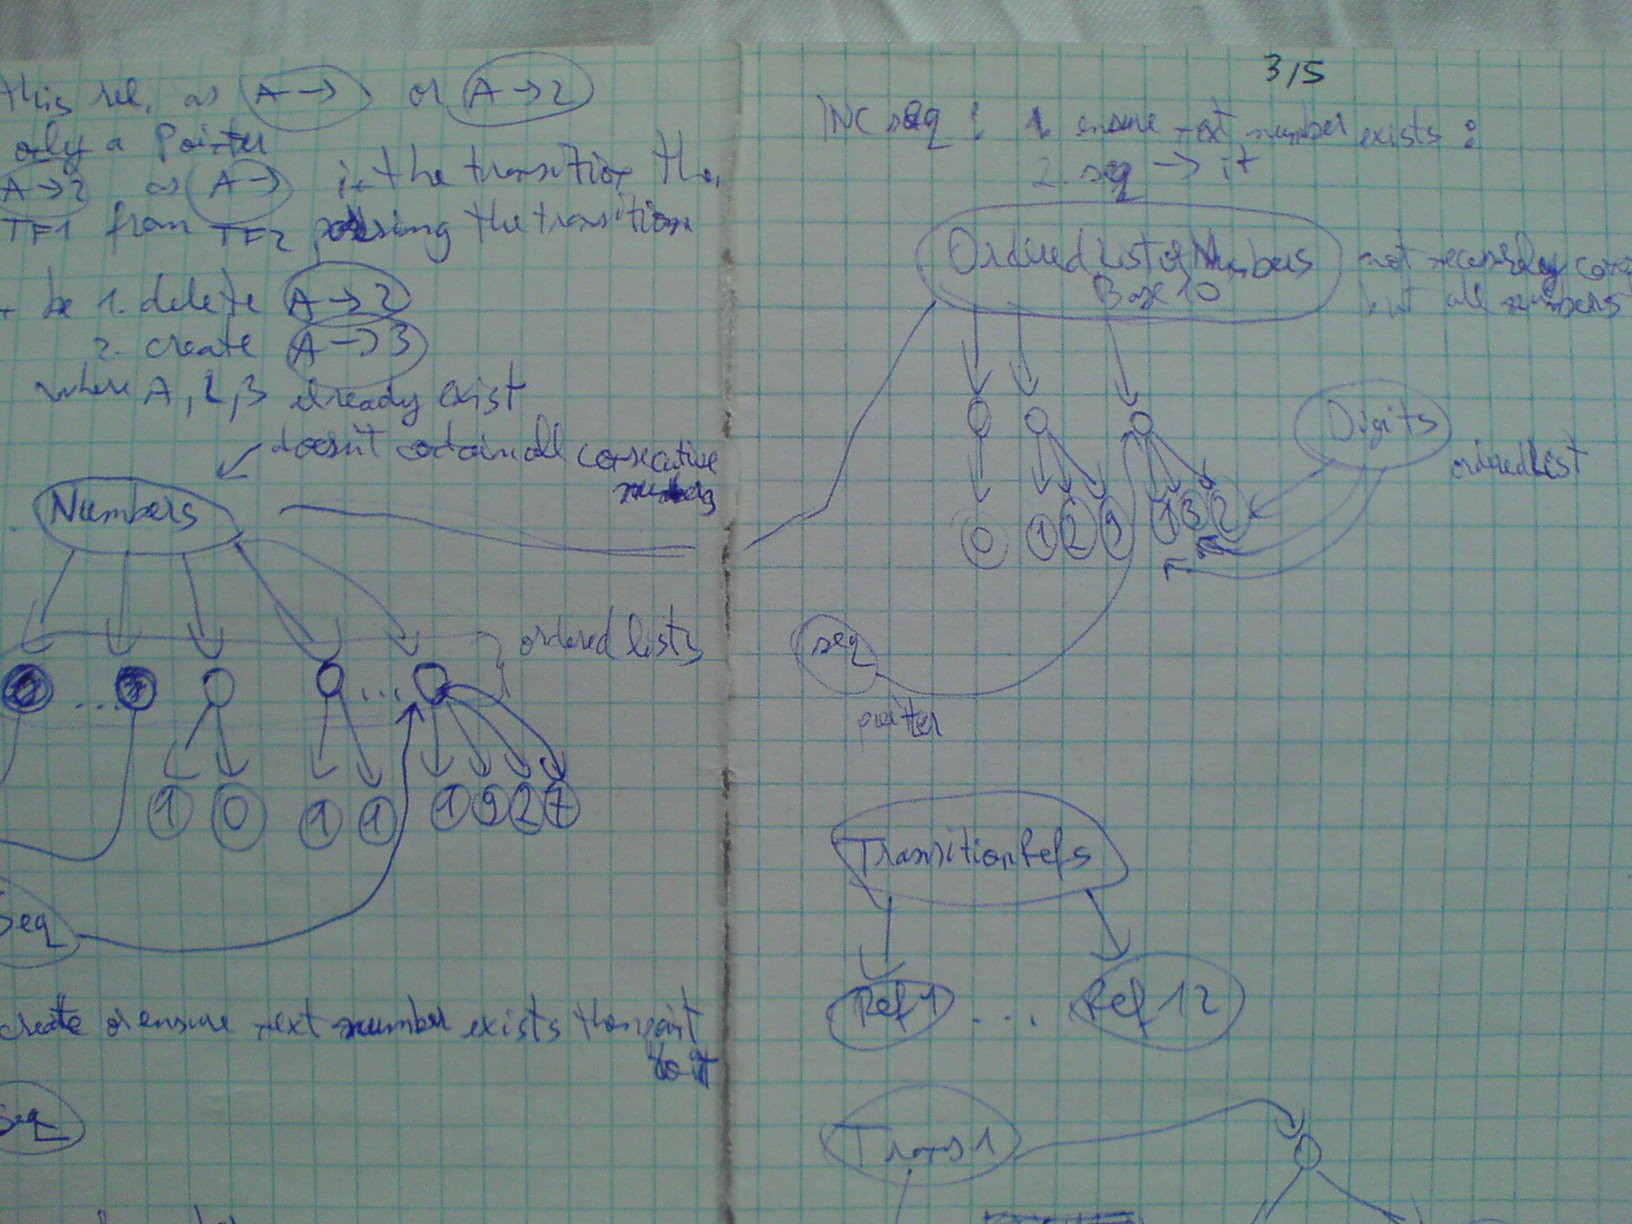 this rel. as A→ or A→2
only a Pointer
A→2 as A→ is the transition
TF1 from TF2 the transition
be 1. delete A→2
2. create A→3
where A, 2, 3 already exist
doesn't contain all consecutive
numbers
Numbers
ordered lists
... ...
1 0 1 1 1 9 2 7
Seq
create or ensure next number exists then point
to it
Seq
3/5
INC seq : 1. ensure next number exists :
2. seq → it
Ordered List of Numbers
Base 10
not necessarily
but all numbers
Digits
ordered List
0 1 2 9 1 3 2
seq
pointer
TransitionRefs
Ref 1 .... Ref 12
Trans 1